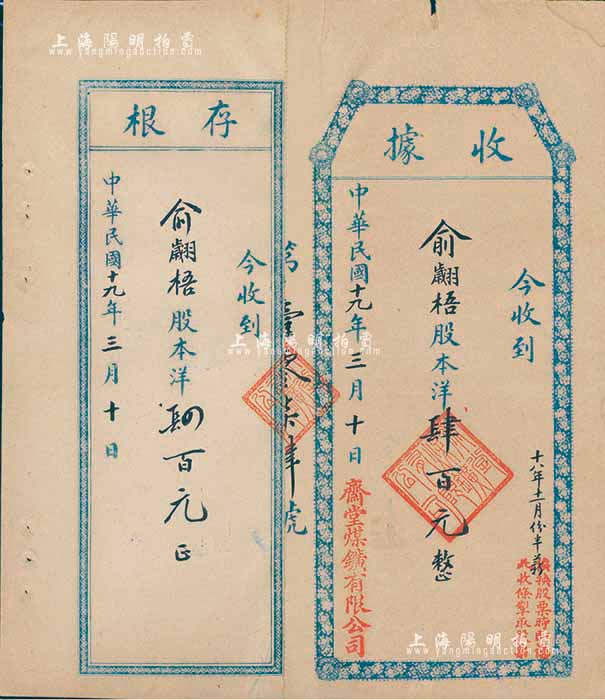 上海陽明拍賣
www.yangmingauction.com
收據
今收到
俞翽梧股本洋肆百元整
中華民國十九年三月十日
齋堂煤鑛有限公司
十八年十二月份半薪
換股票時
此收條
號
存根
今收到
俞翽梧股本洋肆百元正
中華民國十九年三月十日
上海陽明拍賣
www.yangmingauction.com
上海陽明拍賣
www.yangmingauction.com